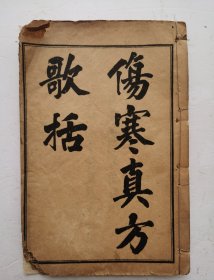 傷寒真方
歌括